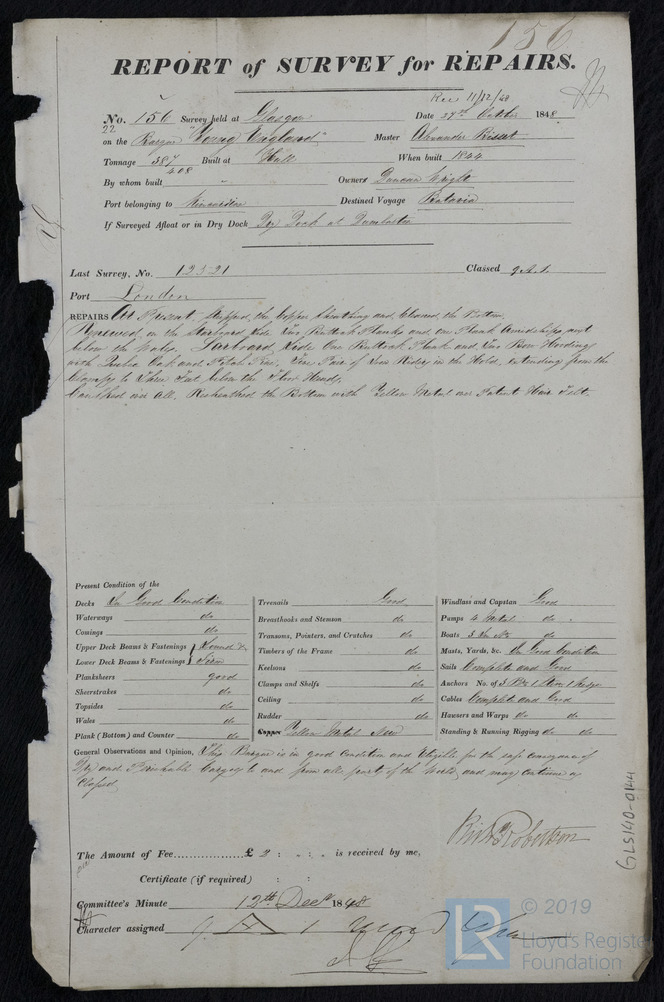 156
REPORT of SURVEY for REPAIRS.
Rec 11/12/48
No. 156 Survey held at Glasgow Date 27th October 1848
22 on the Barque "Young England" Master Alexander Bisset
Tonnage 387 408 Built at Hull When built 1844
By whom built Owners Duncan Wright
Port belonging to Destined Voyage Batavia
If Surveyed Afloat or in Dry Dock Dry Dock at Dumbarton
Last Survey, No. 12521 Classed 9 A.1.
Port London
REPAIRS At Present, Stripped the Copper Sheathing and Cleaned the Bottom.
Renewed, on the Starboard Side Two Buttock Planks and one Plank Amidships next
below the Wales, Larboard Side One Buttock Plank and Two Bow Hoodings
with Quebec Oak and Pitch Pine, Five Pair of Iron Riders in the Hold, extending from the
Clamps to Three Feet below the Floor Heads,
Caulked over all, Resheathed the Bottom with Yellow Metal over Patent Hair Felt.
Present Condition of the
Decks In Good Condition
Waterways do
Comings do
Upper Deck Beams & Fastenings } Sound &
Lower Deck Beams & Fastenings } Firm
Planksheers good
Sheerstrakes do
Topsides do
Wales do
Plank (Bottom) and Counter do
Treenails Good
Breasthooks and Stemson do
Transoms, Pointers, and Crutches do
Timbers of the Frame do
Keelsons do
Clamps and Shelfs do
Ceiling do
Rudder do
Copper Yellow Metal New
Windlass and Capstan Good
Pumps 4 Metal do
Boats 3 In No do
Masts, Yards, &c. In Good Condition
Sails Complete and Good
Anchors No. of 3 Brs 1 Stream 1 Kedge
Cables Complete and Good
Hawsers and Warps do do
Standing & Running Rigging do do
General Observations and Opinion, This Barque is in good Condition and Eligible for the safe conveyance of
Dry and Perishable Cargoes to and from all parts of the World, and may continue as
Classed,
Robertson
The Amount of Fee £ 2 : - : - is received by me,
Certificate (if required) : :
Committee's Minute 12th Decr 1848
Character assigned 9 A 1
GLS140-0144
LR
© 2019
Lloyd's Register
Foundation